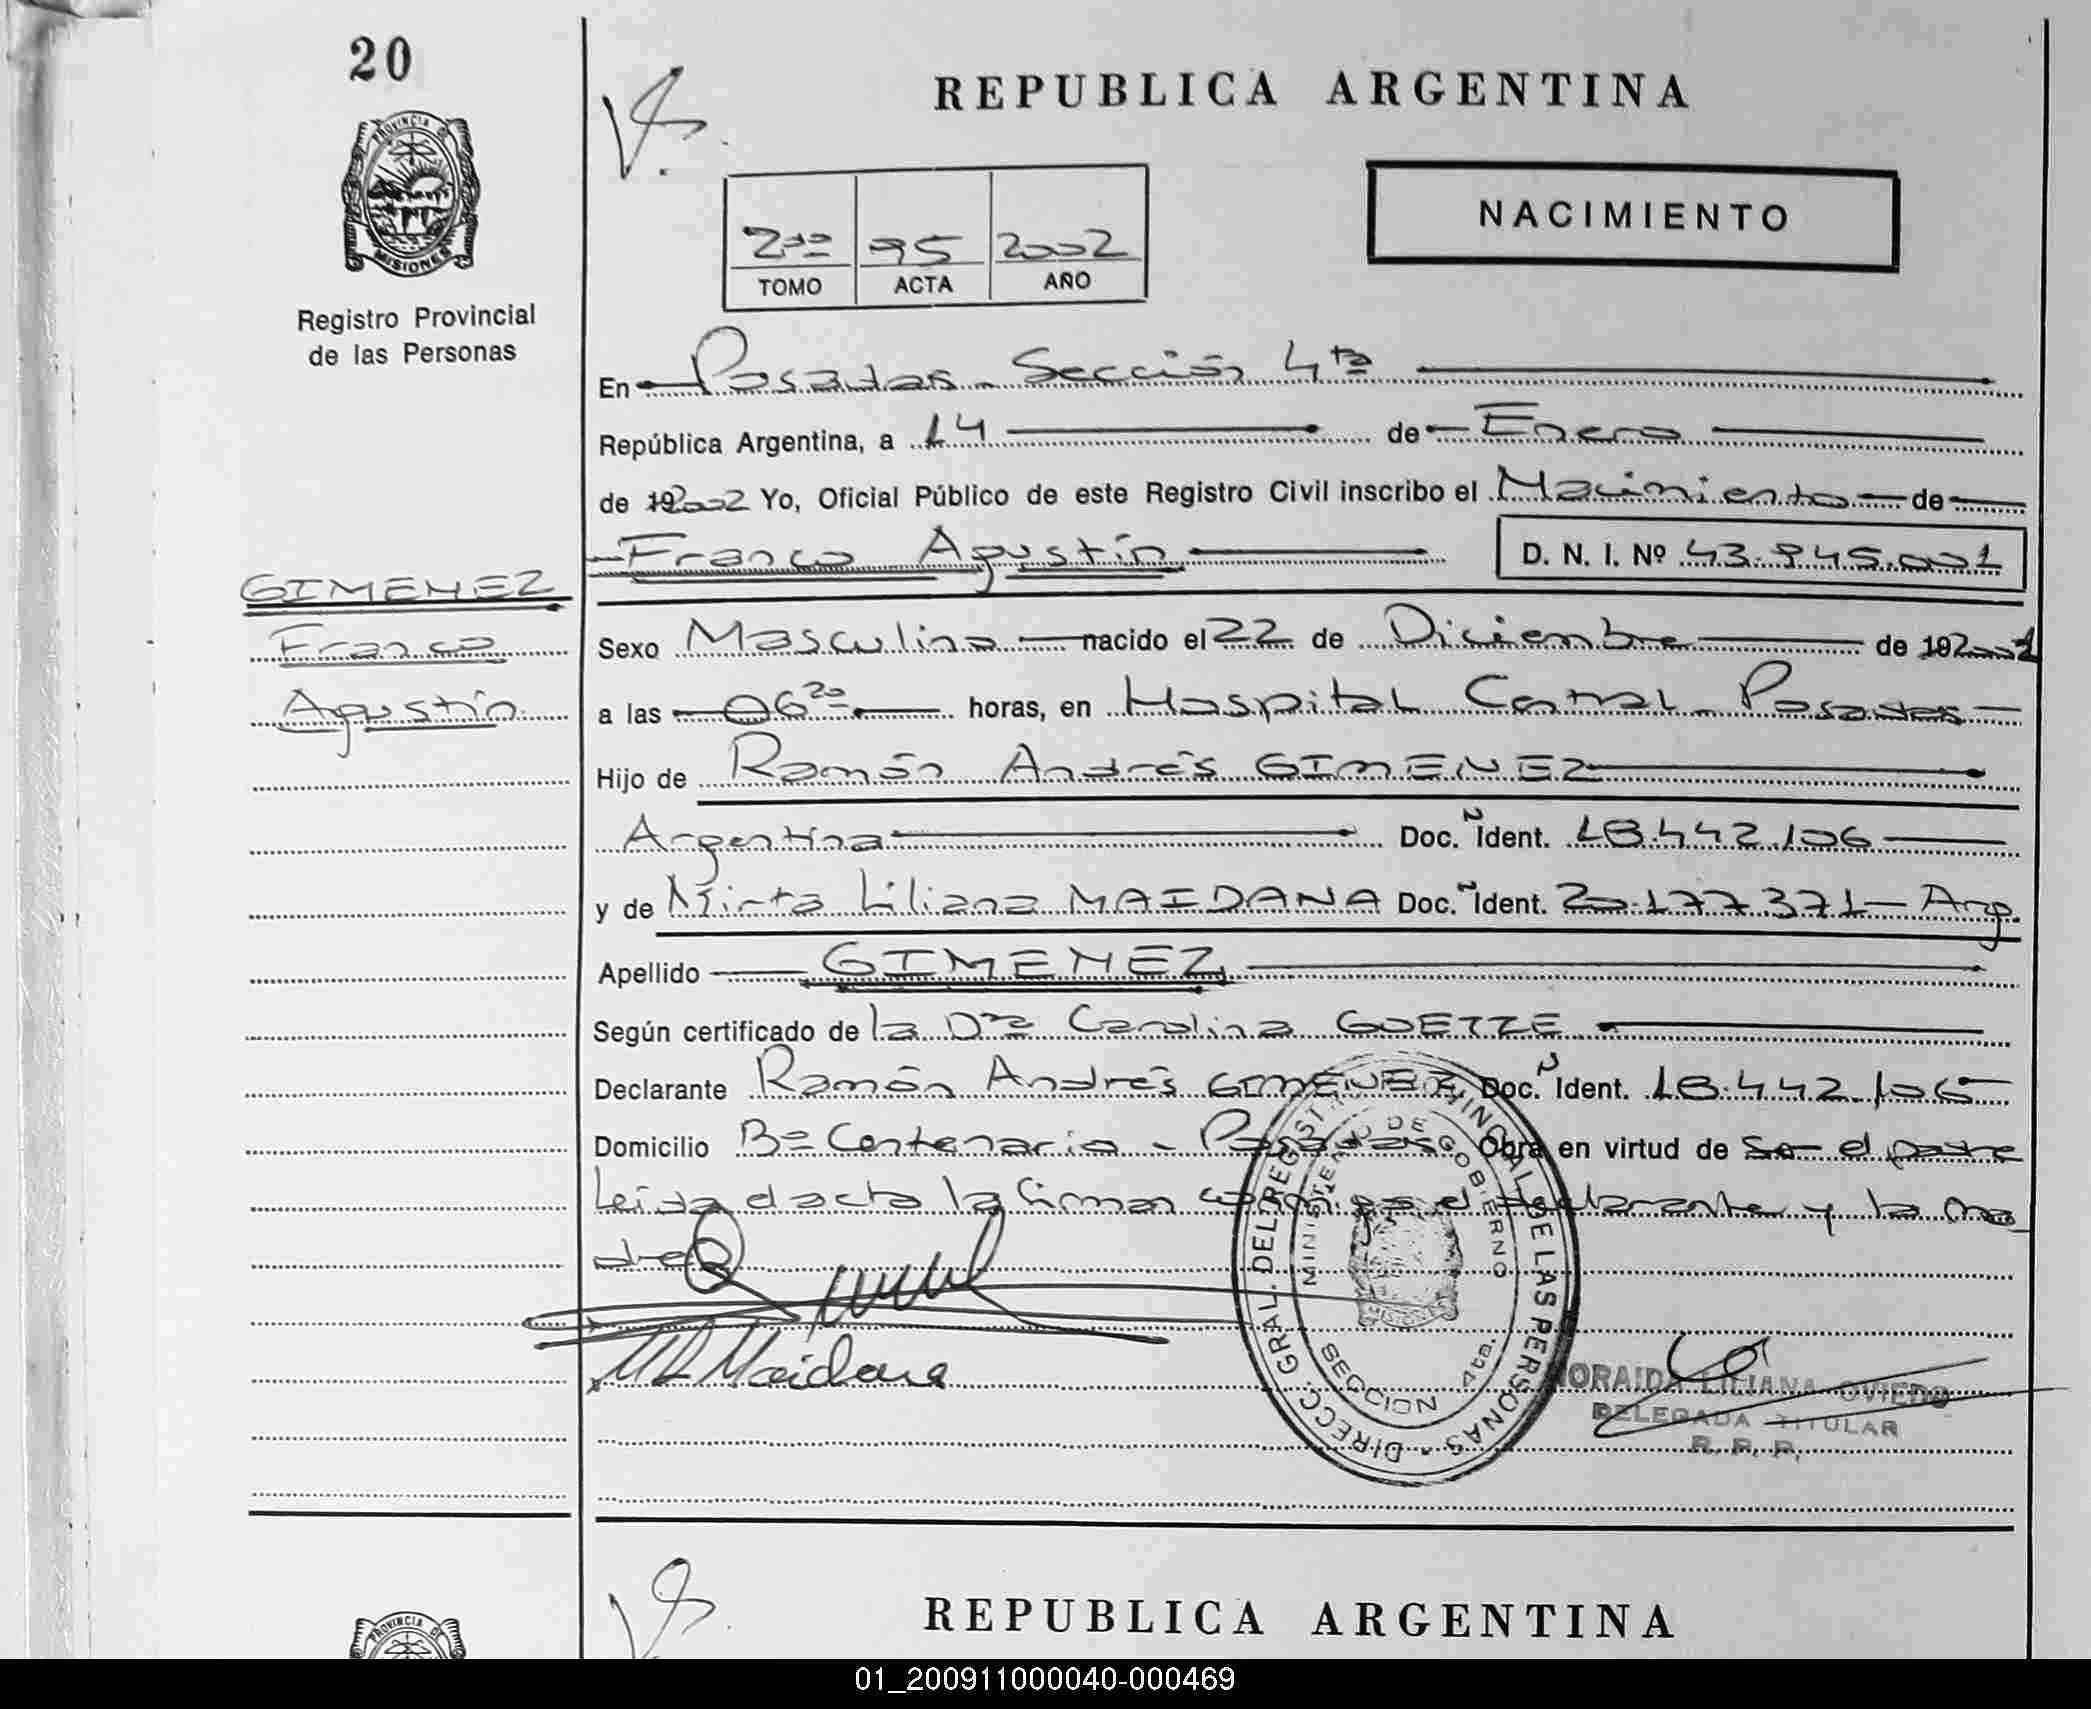 20
PROVINCIA DE
MISIONES
Registro Provincial
de las Personas
REPUBLICA ARGENTINA
NACIMIENTO
2do 95 2002
TOMO ACTA AÑO
En Posadas - Sección 4ta
República Argentina, a 14 de Enero
de 192002 Yo, Oficial Público de este Registro Civil inscribo el Nacimiento de
Franco Agustín D. N. I. Nº 43.845.001
GIMENEZ
Franco
Agustín
Sexo Masculino nacido el 22 de Diciembre de 192001
a las 06 20 horas, en Hospital Central - Posadas
Hijo de Ramón Andrés GIMENEZ
Argentina Doc. Ident. 18.442.106
y de Mirta Liliana MAIDANA Doc. Ident. 20.177.371 - Arg.
Apellido GIMENEZ
Según certificado de la Dra Carolina GOETZE
Declarante Ramón Andrés GIMENEZ Doc. Ident. 18.442.106
Domicilio Bº Centenario - Posadas Obra en virtud de ser el padre
Leída el acta la firman conmigo el declarante y la ma
dre
M L Maidana
DIRECC. GRAL. DEL REGISTRO PROVINCIAL DE LAS PERSONAS
MINISTERIO DE GOBIERNO
SECCION 4ta.
MISIONES
ZORAIDA LILIANA OVIEDO
DELEGADA TITULAR
R. P. P.
PROVINCIA DE
REPUBLICA ARGENTINA
01_200911000040-000469